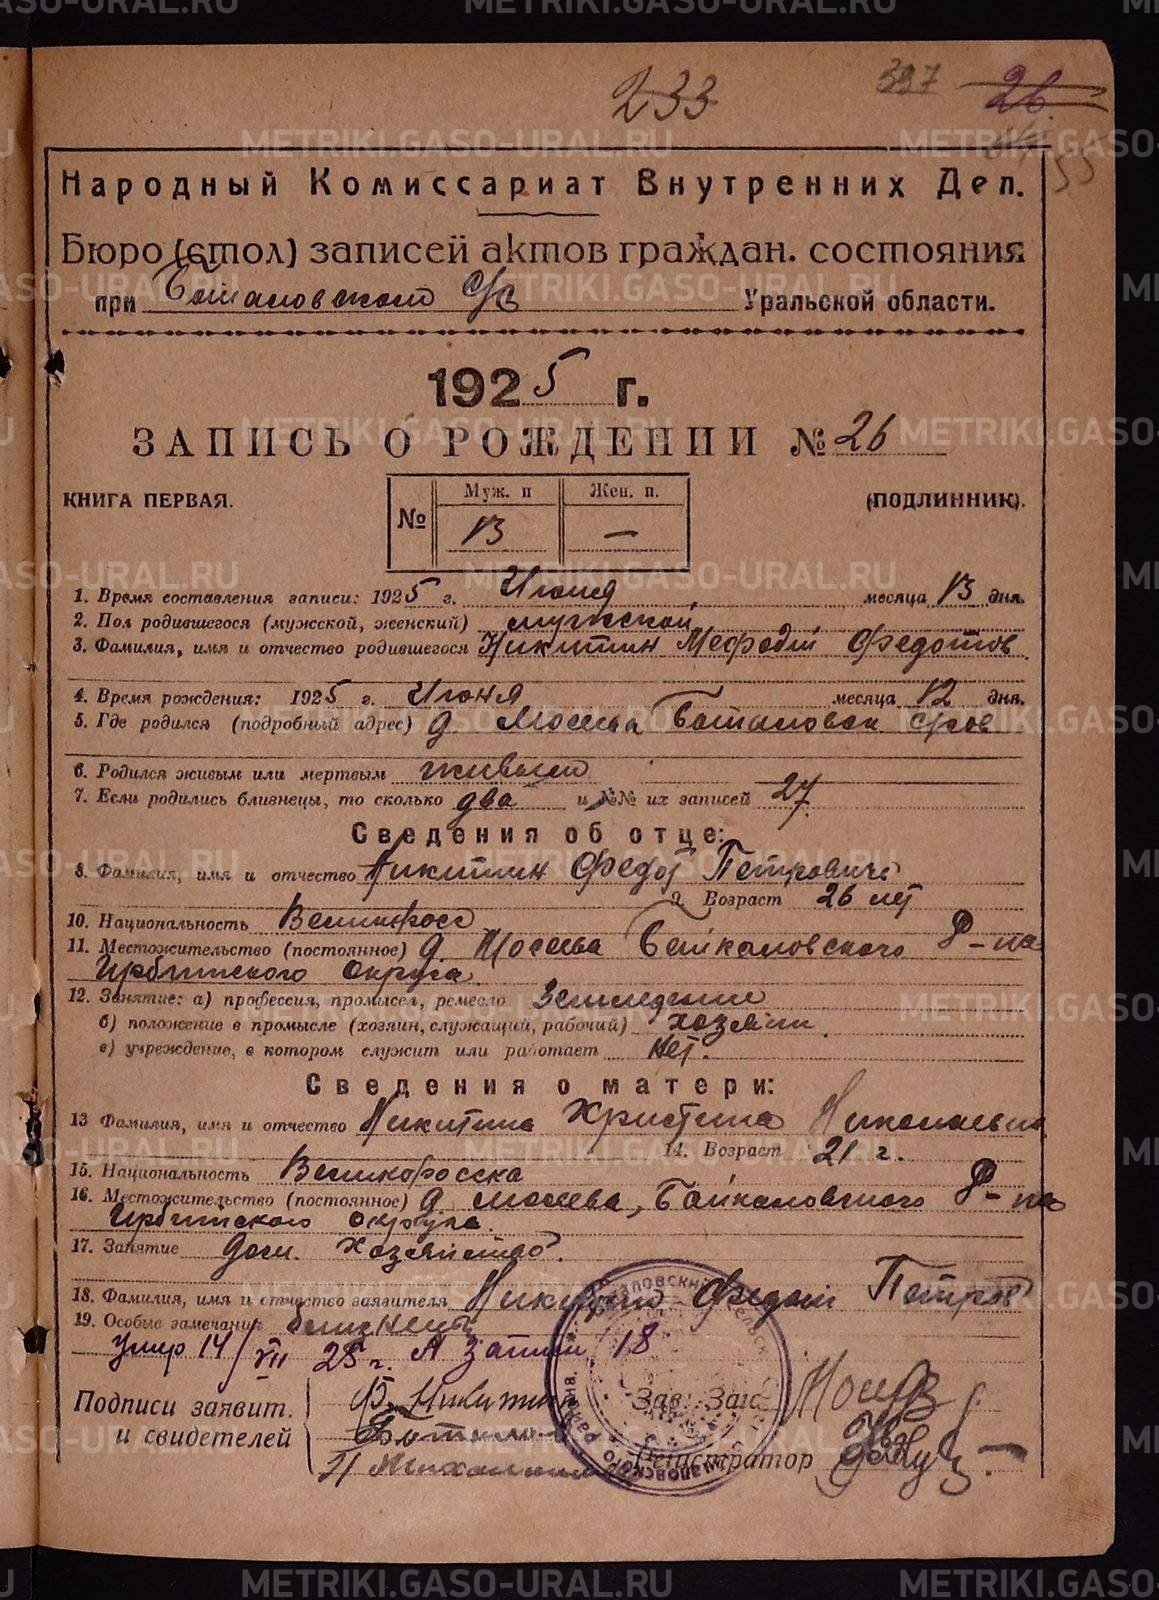 233 397 26
55
Народный Комиссариат Внутренних Дел.
Бюро (стол) записей актов граждан. состояния
при Боталовского с/с Уральской области.
1925 г.
ЗАПИСЬ О РОЖДЕНИИ № 26
КНИГА ПЕРВАЯ. № Муж. п 13 Жен. п. — (ПОДЛИННИК).
1. Время составления записи: 1925 г. Июня месяца 13 дня.
2. Пол родившегося (мужской, женский) мужской
3. Фамилия, имя и отчество родившегося Никитин Мефодий Федотов
4. Время рождения: 1925 г. Июня месяца 12 дня.
5. Где родился (подробный адрес) д. Мосева Боталовск
6. Родился живым или мертвым живым
7. Если родились близнецы, то сколько два и №№ их записей 27
Сведения об отце:
8. Фамилия, имя и отчество Никитин Федот Петрович
9. Возраст 26 лет
10. Национальность Великросс
11. Местожительство (постоянное) д. Мосева Байкаловского Р-на
Ирбитского округа.
12. Занятие: а) профессия, промысел, ремесло
б) положение в промысле (хозяин, служащий, рабочий) хозяин
в) учреждение, в котором служит или работает нет.
Сведения о матери:
13 Фамилия, имя и отчество Никитина Христина Николаевна
14. Возраст 21 г.
15. Национальность Великоросска
16. Местожительство (постоянное) д. Мосева, Байкаловского Р-на
Ирбитского округа.
17. Занятие Дом. Хозяйство.
18. Фамилия, имя и отчество заявителя Никитин Федот Петров
19. Особые замечания близнецы
Умер 14/VII 25 г. А запись 18
Подписи заявит. Ф. Никитин Зав. Загс
и свидетелей
Регистратор
METRIKI.GASO-URAL.RU